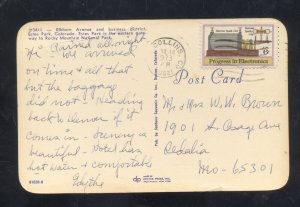 D3413 - Elkhorn Avenue and business district,
Estes Park, Colorado. Estes Park is the eastern gate-
way to Rocky Mountain National Park.
Rained all night
We arrived
on time & all that
but the baggage
did not. Heading
back to Denver if it
comes in. Scenery is
beautiful. Hotel has
hot water & comfortable
Edythe
COLLINS
PM
Progress in Electronics
Post Card
Mr & Mrs W. W. Brown
1901 So Osage Ave
Sedalia
Mo - 65301
dp